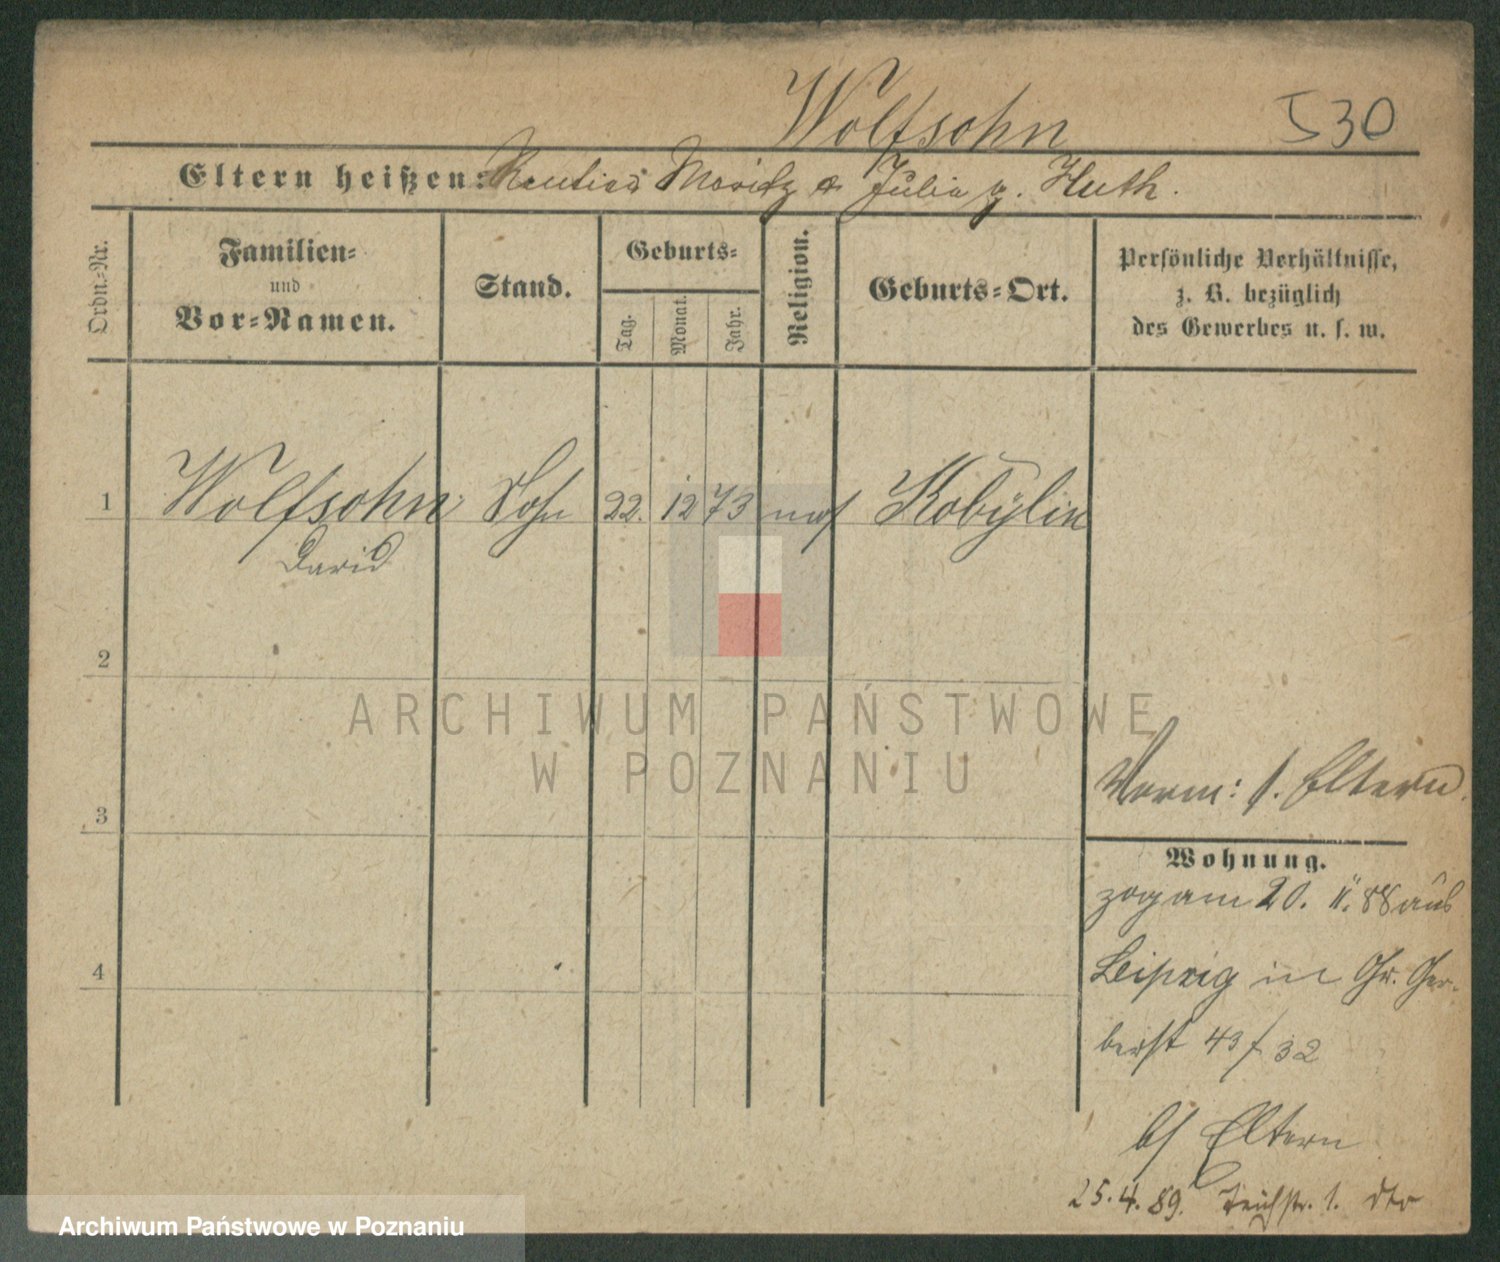 Wolfsohn 530
Eltern heißen: Rentier Moritz & Julia g. Huth.
Ordn.-Nr.
Familien-
und
Vor-Namen.
Stand.
Geburts-
Tag.
Monat.
Jahr.
Religion.
Geburts-Ort.
Persönliche Verhältnisse,
z. B. bezüglich
des Gewerbes u. s. w.
1 Wolfsohn Sohn 22. 12 73 mos Kobylin
David
2
3
4
ARCHIWUM PAŃSTWOWE
W POZNANIU
Vorm: s. Eltern.
Wohnung.
zog am 20. 11. 88 aus
Leipzig in Gr. Ger-
berst 43/32
b/ Eltern
25.4.89. Teichstr. 1. dto
Archiwum Państwowe w Poznaniu